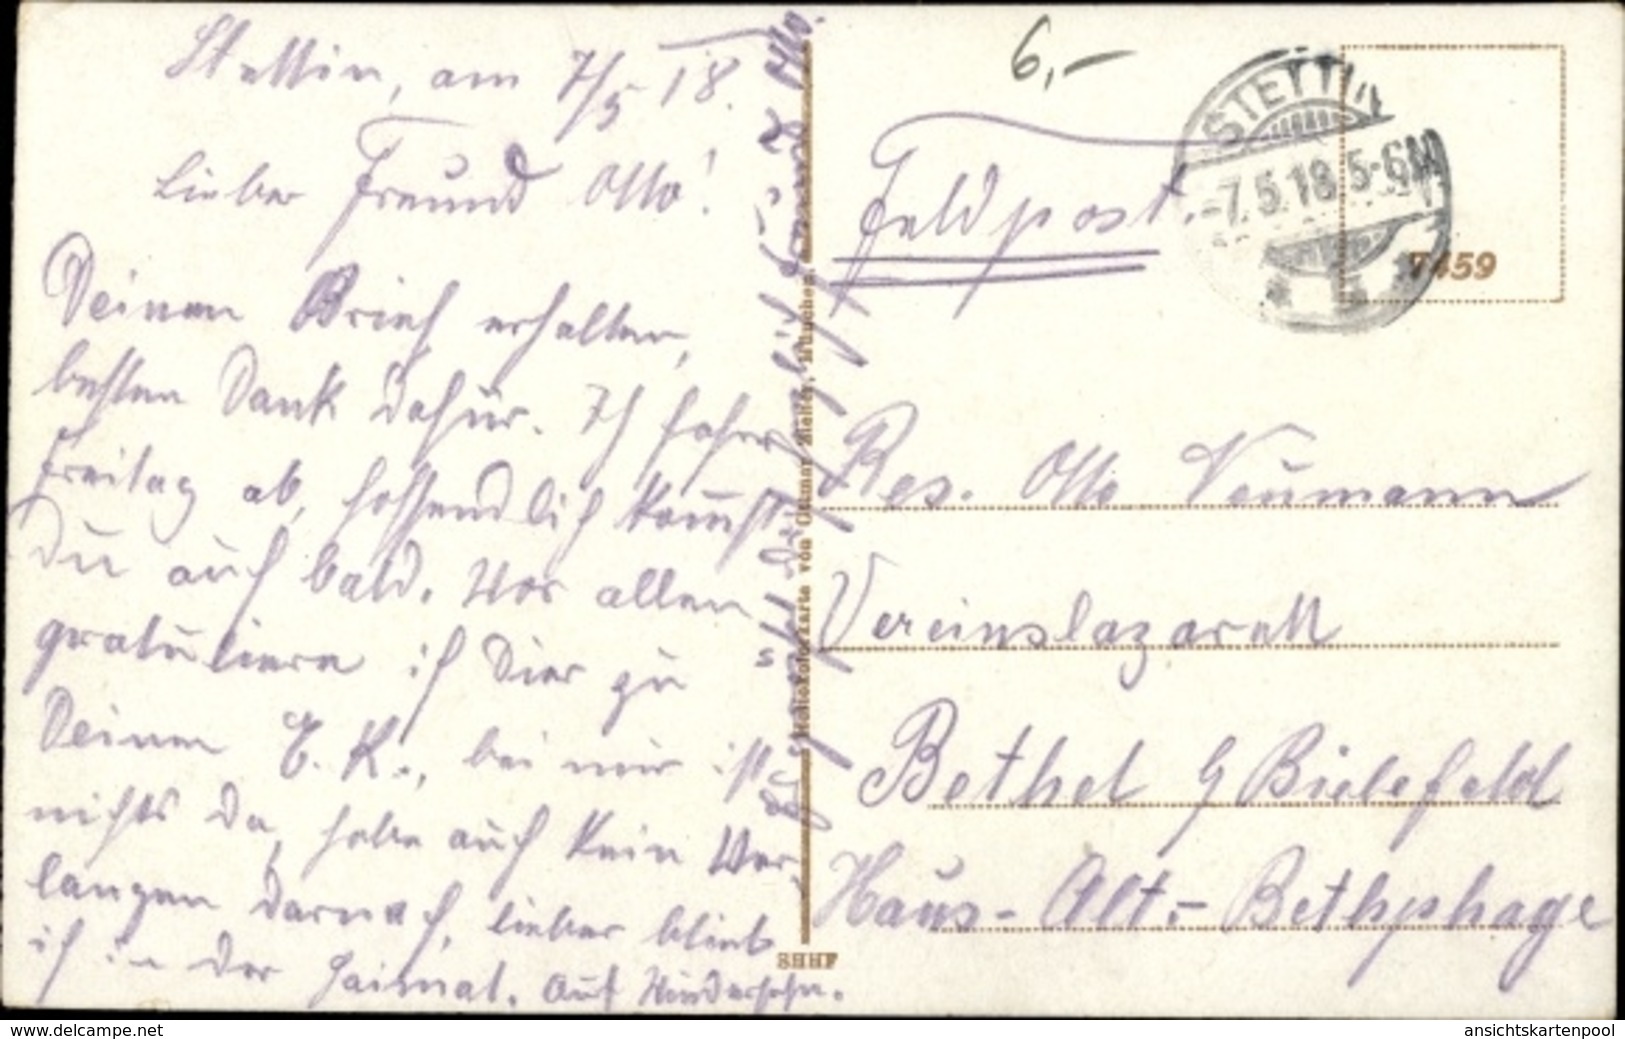 Stettin, am 7/5 18.
Lieber Freund Otto!
Deinen Brief erhalten,
besten Dank dafür. Ich fahre
Freitag ab, hoffendlich kommst
Du auch bald. Vor allen
gratuliere ich Dier zu
Deinem E. K., bei mir ist
nichts da, habe auch kein Ver-
langen darnach, lieber blieb
ich in der Heimat. Auf Wiedersehn.
Otto.
Heliokolorkarte von Ottmar Zieher, München
SHHF
6,-
Feldpost.
STETTIN
-7.5.18.5-6N
7459
Res. Otto Neumann
Vereinslazarett
Bethel b/ Bielefeld
Haus- Alt.- Bethphage
www.delcampe.net
ansichtskartenpool